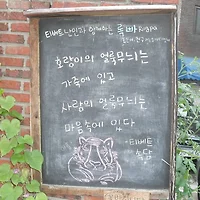 티베트 난민과 함께하는 록빠
호랑이의 얼룩무늬는
가죽에 있고
사람의 얼룩무늬는
마음속에 있다
-티베트
속담